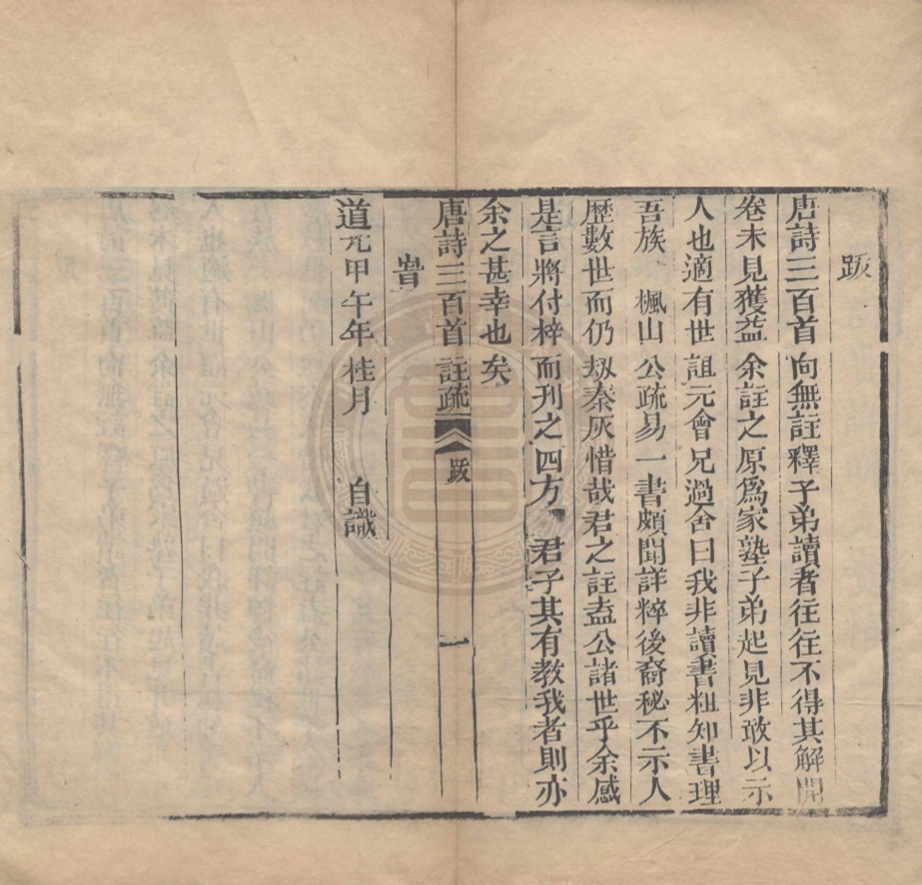 跋
唐詩三百首向無註釋子弟讀者往往不得其解開
卷未見獲益余註之原爲家塾子弟起見非敢以示
人也適有世誼元會兄過舍曰我非讀書粗知書理
吾族 楓山公疏易一書頗聞詳粹後裔秘不示人
歷數世而仍刼秦灰惜哉君之註盍公諸世乎余感
是言將付梓而刊之四方 君子其有教我者則亦
余之甚幸也矣
唐詩三百首註疏 跋 一
旹
道光甲午年桂月 自識